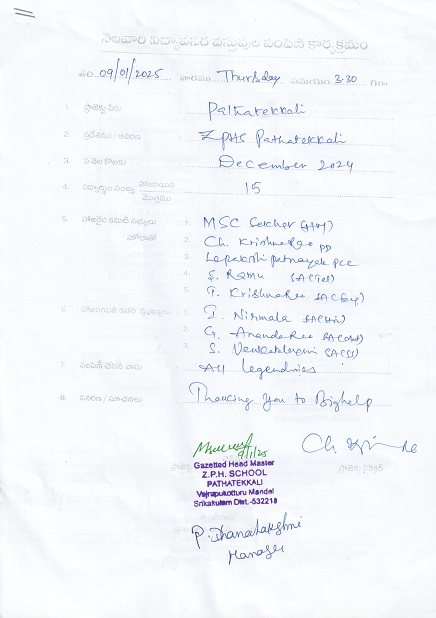 నెలవారి విద్యావసర వస్తువుల పంపిణి కార్యక్రమం
తేది. 09/01/2025 వారము Thursday సమయం 3.30 గంట
1. ప్రాజెక్టు పేరు Pathatekkali
2. ప్రదేశము / ఆవరణ ZPHS Pathatekkali
3. ఏ నెల కొరకు December 2024
4. విద్యార్థుల సంఖ్య హాజరయిన / మొత్తము 15
5. హాజరైన కమిటీ సభ్యులు 1. MSC Sekhar (HM)
హోదాతో 2. Ch. Krishna Rao PD
3. Lepakshi patnayak PCC
4. S. Ramu (AC Tel)
5. T. Krishna Rao (AC Eng)
6. హాజరయిన ఇతర వ్యక్తులు 1. I. Nirmala
2. G. Ananda Rao
3. S. Venkatalaxmi (AC SS)
7. పంపిణీ చేసిన వారు All legendries
8. వివరణ / సూచనలు Thancing You to Bighelp
9/1/25
Gazetted Head Master
Z.P.H. SCHOOL
PATHATEKKALI
Vajrapukotturu Mandal
Srikakulam Dist.-532218
ప్రాజెక్ట్ డైరెక్టర్
P. Dhanalakshmi
Manager